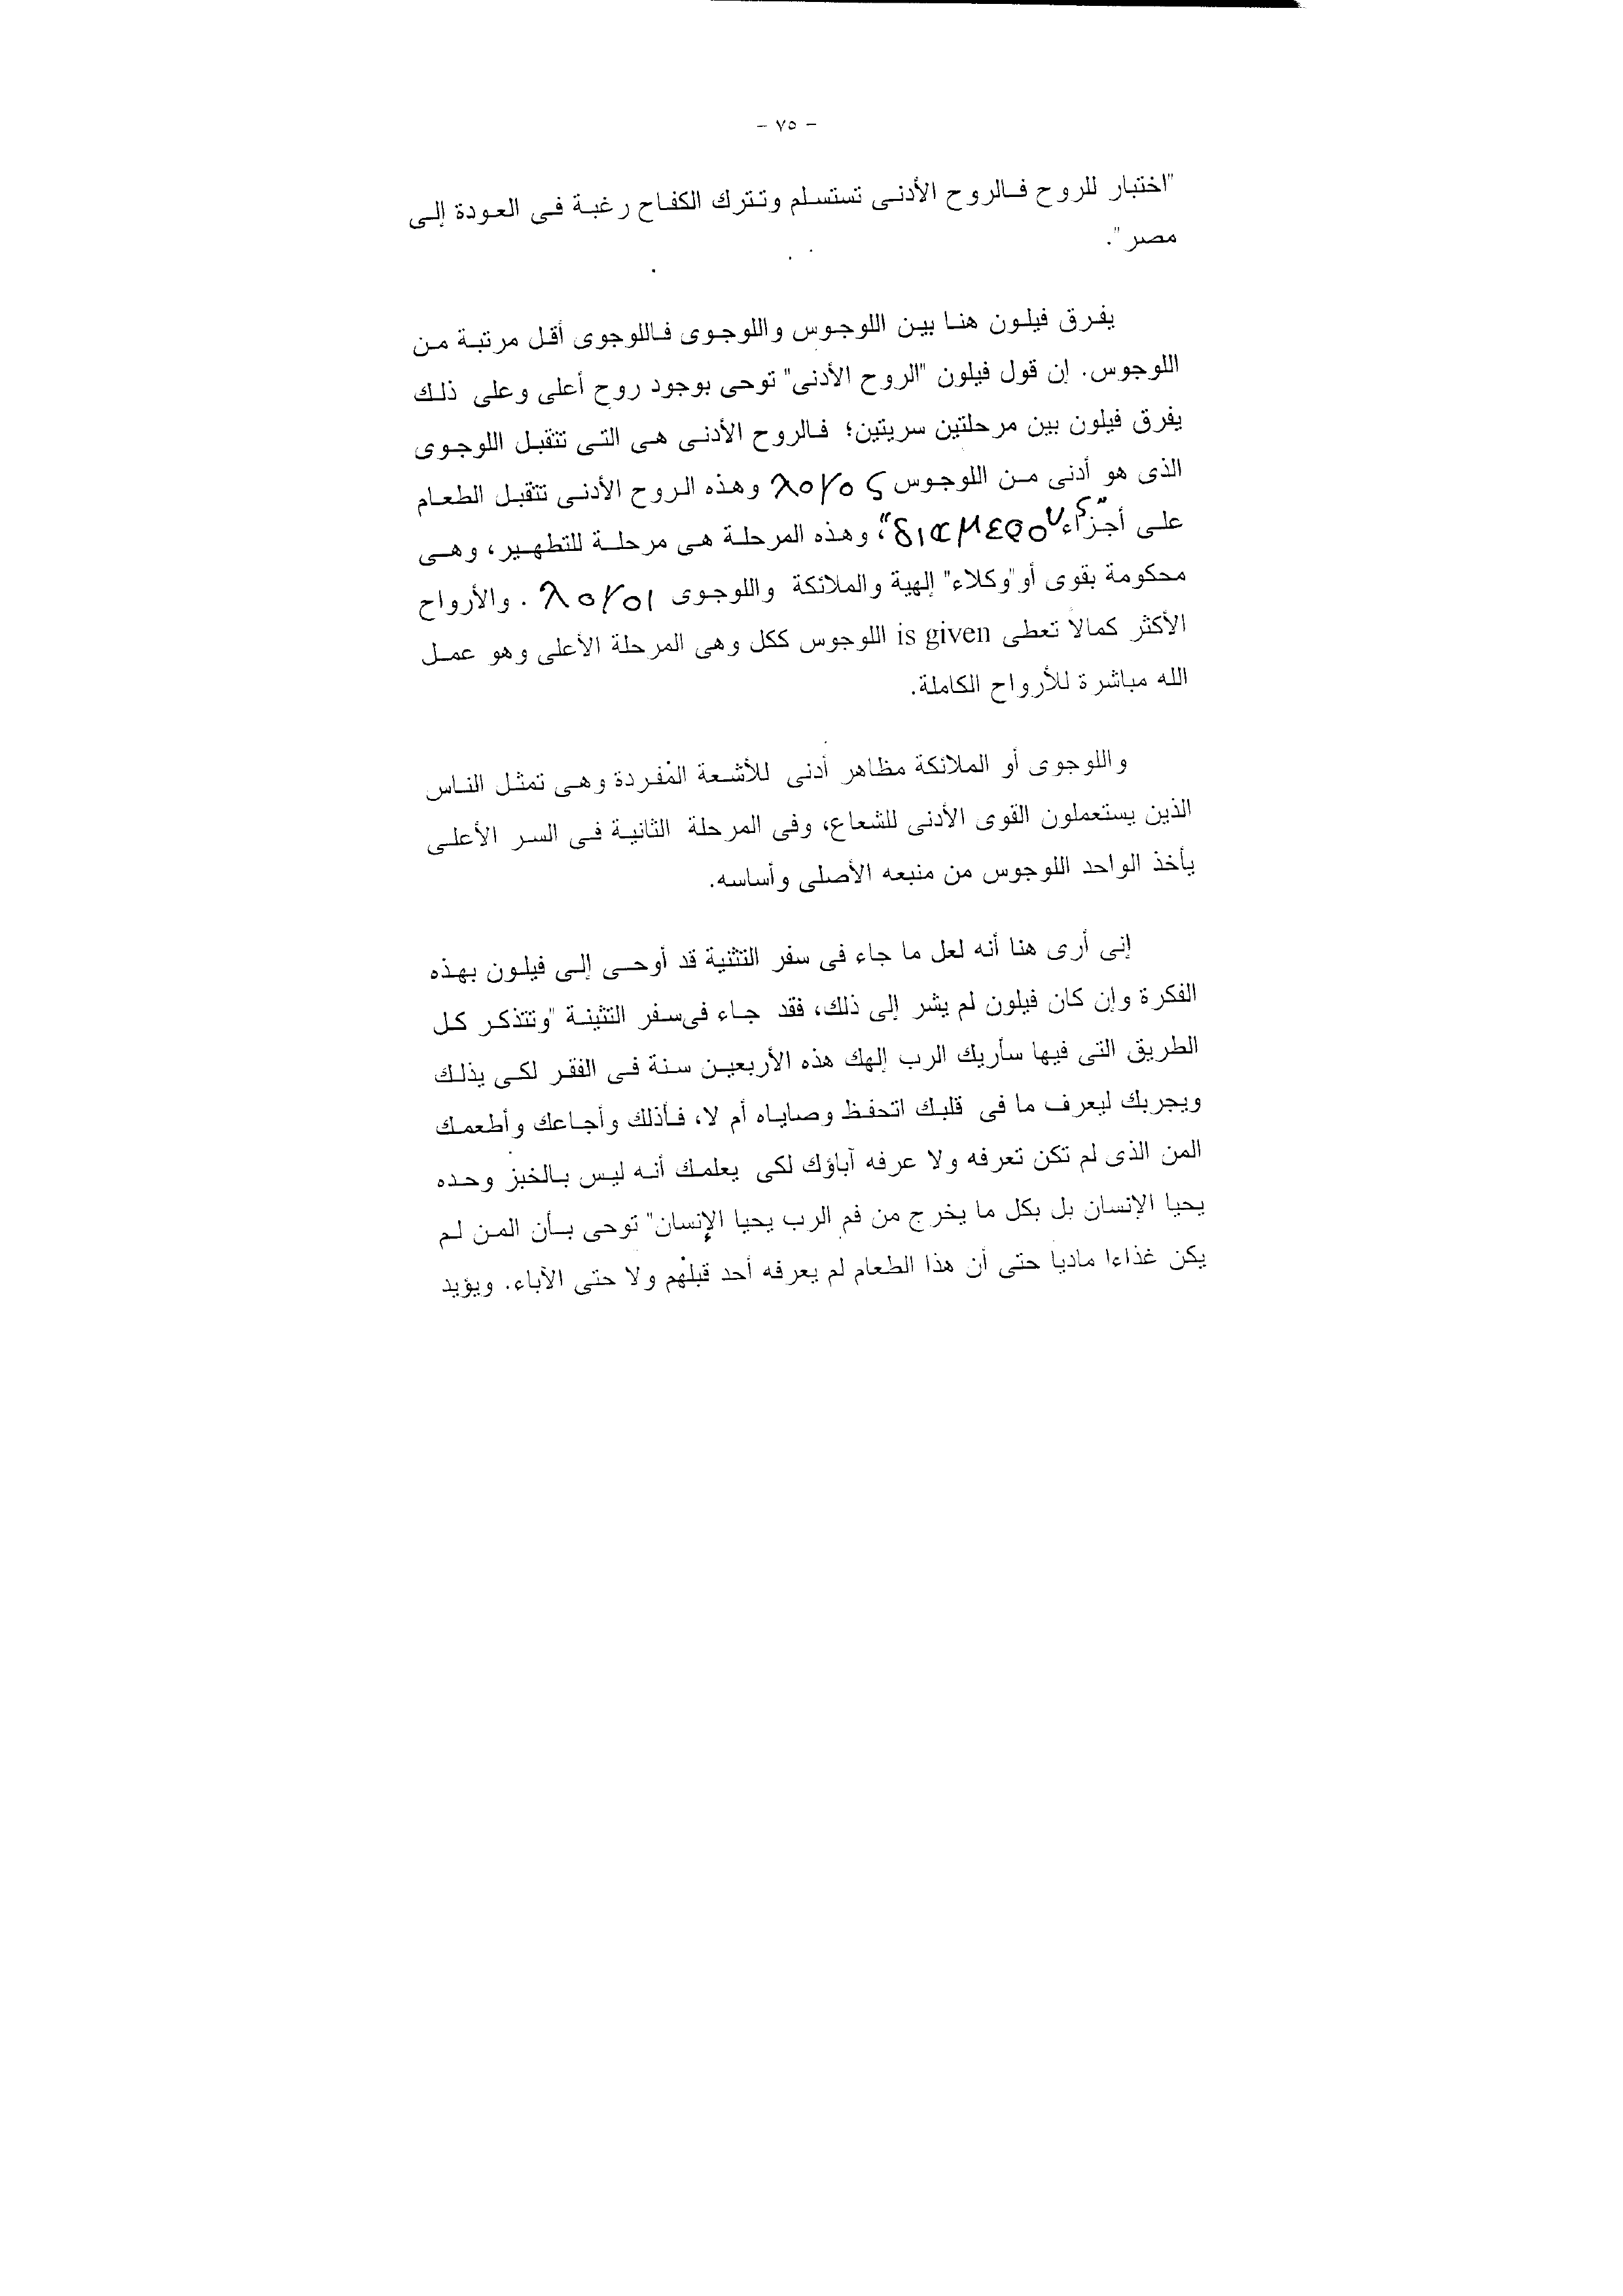 - ٧٥ -
"اختبار للروح فالروح الأدنى تستسلم وتترك الكفاح رغبة فى العودة إلى
مصر".
يفرق فيلون هنا بين اللوجوس واللوجوى فاللوجوى أقل مرتبة من
اللوجوس. إن قول فيلون "الروح الأدنى" توحى بوجود روح أعلى وعلى ذلك
يفرق فيلون بين مرحلتين سريتين؛ فالروح الأدنى هى التى تتقبل اللوجوى
الذى هو أدنى من اللوجوس λογος وهذه الروح الأدنى تتقبل الطعام
على أجزاء "διαμερους"، وهذه المرحلة هى مرحلة للتطهير، وهى
محكومة بقوى أو"وكلاء" إلهية والملائكة واللوجوى λογοι . والأرواح
الأكثر كمالا تعطى is given اللوجوس ككل وهى المرحلة الأعلى وهو عمل
الله مباشرة للأرواح الكاملة.
واللوجوى أو الملائكة مظاهر أدنى للأشعة المفردة وهى تمثل الناس
الذين يستعملون القوى الأدنى للشعاع، وفى المرحلة الثانية فى السر الأعلى
يأخذ الواحد اللوجوس من منبعه الأصلى وأساسه.
إنى أرى هنا أنه لعل ما جاء فى سفر التثنية قد أوحى إلى فيلون بهذه
الفكرة وإن كان فيلون لم يشر إلى ذلك، فقد جاء فى سفر التثينة "وتتذكر كل
الطريق التى فيها سأريك الرب إلهك هذه الأربعين سنة فى الفقر لكى يذلك
ويجربك ليعرف ما فى قلبك اتحفظ وصاياه أم لا، فأذلك وأجاعك وأطعمك
المن الذى لم تكن تعرفه ولا عرفه آباؤك لكى يعلمك أنه ليس بالخبز وحده
يحيا الإنسان بل بكل ما يخرج من فم الرب يحيا الإنسان" توحى بأن المن لم
يكن غذاءا ماديا حتى أن هذا الطعام لم يعرفه أحد قبلهم ولا حتى الآباء. ويؤيد